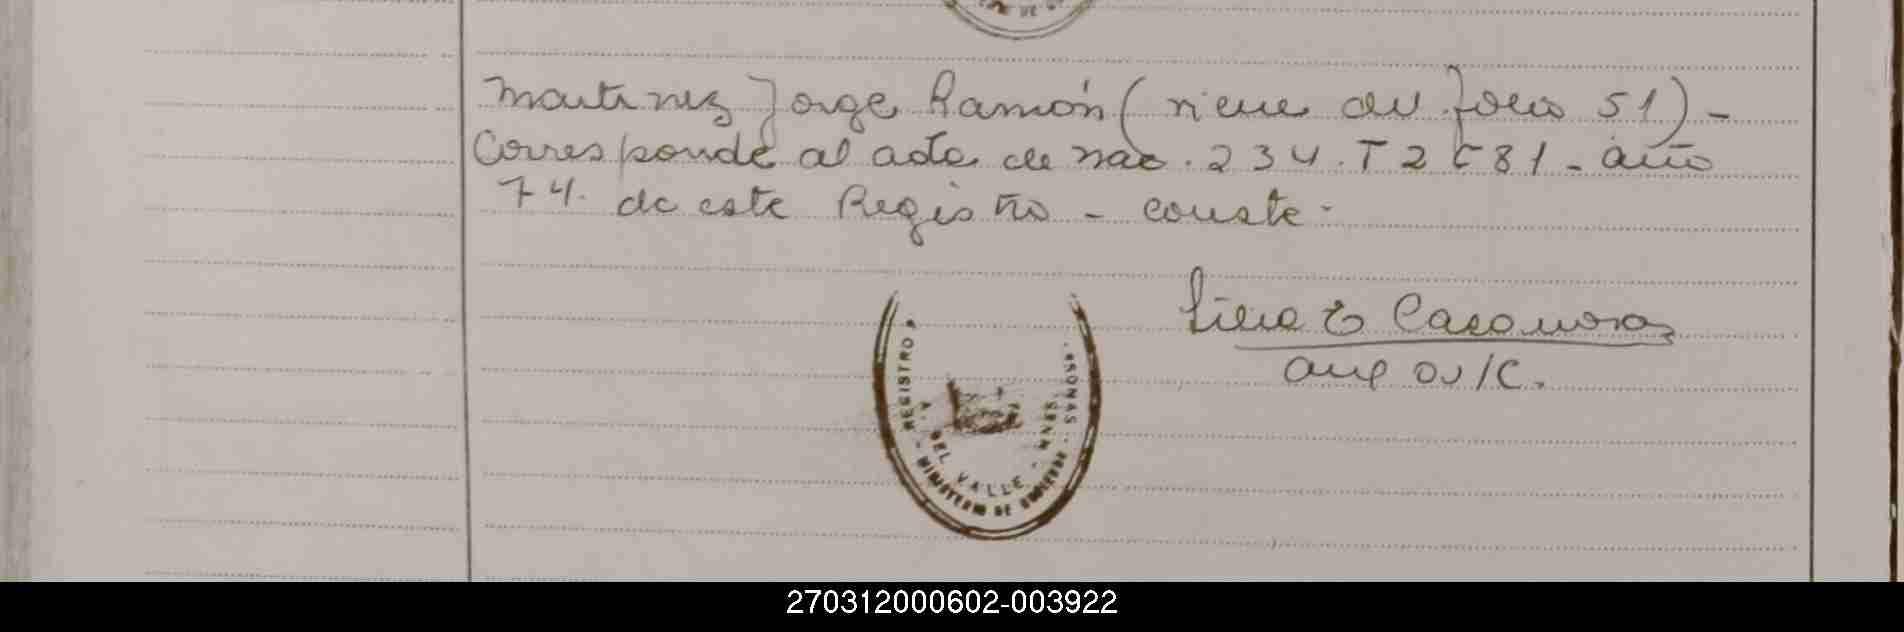 Martinez Jorge Ramón (viene del folio 51) -
Corresponde al acta de nac. 234. T 2 F 81 - año
74. de este Registro - conste -
Casanova
REGISTRO
DEL VALLE
MINISTERIO DE
270312000602-003922